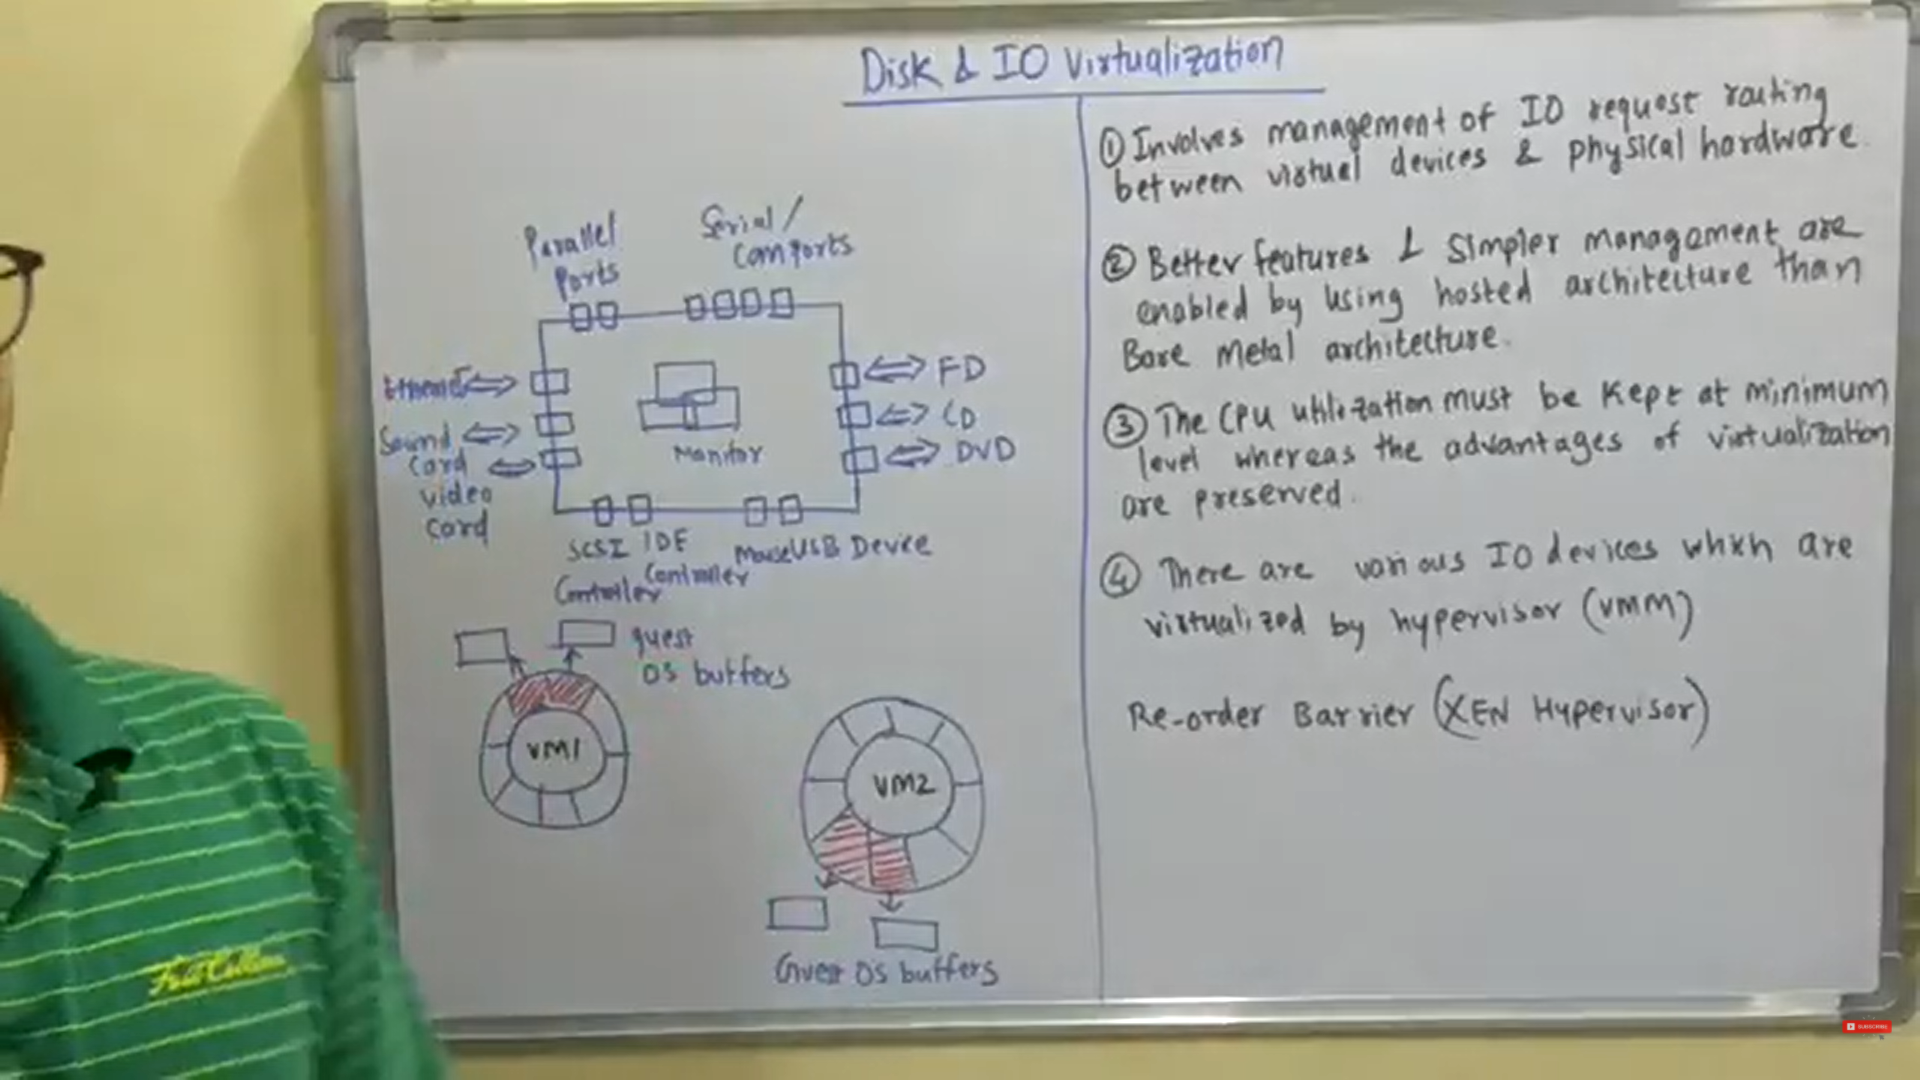 Disk & IO Virtualization
Parallel
Ports
Serial/
Com Ports
Ethernet
Sound
Card
video
Card
FD
CD
DVD
Monitor
SCSI
Controller
IDE
Controller
Mouse
USB Device
guest
OS buffers
VM1
VM2
Guest OS buffers
① Involves management of IO request routing
between virtual devices & physical hardware.
② Better features & simpler management are
enabled by using hosted architecture than
Bare Metal architecture.
③ The CPU utilization must be kept at minimum
level whereas the advantages of virtualization
are preserved.
④ There are various IO devices which are
virtualized by hypervisor (VMM)
Re-order Barrier (XEN Hypervisor)
SUBSCRIBE